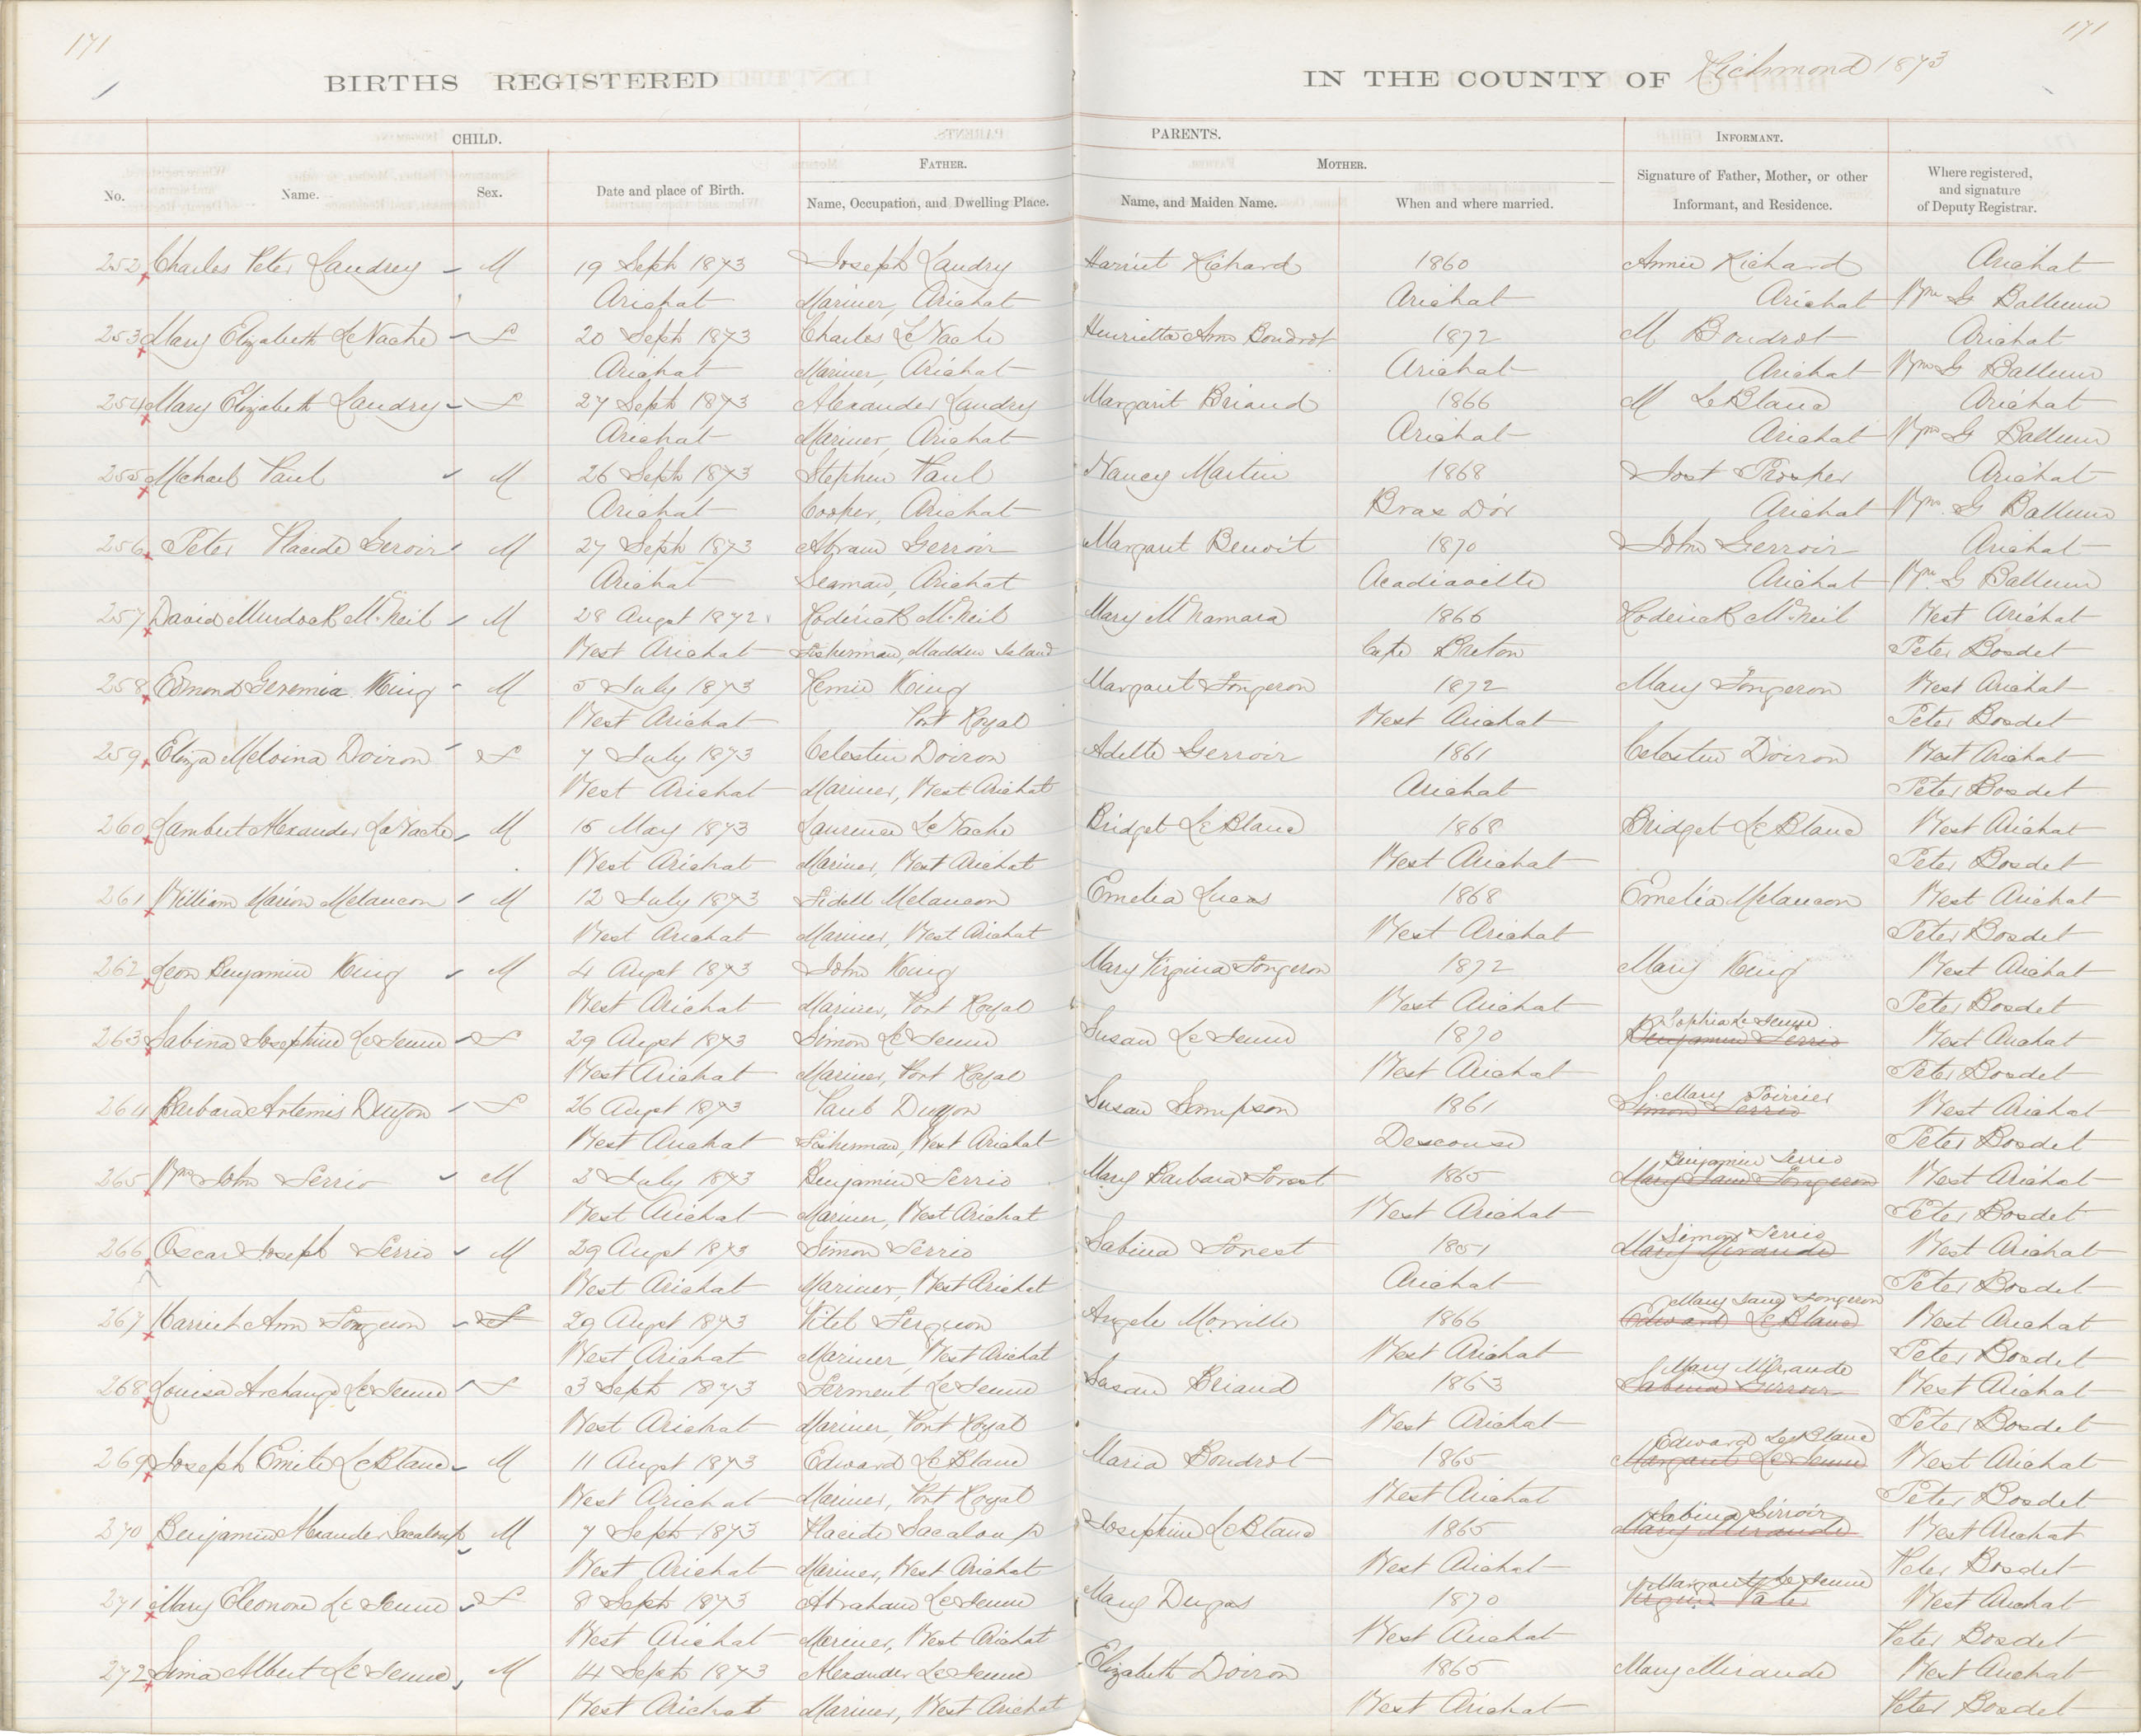 171
171
BIRTHS REGISTERED
IN THE COUNTY OF Richmond 1873
CHILD.
PARENTS.
INFORMANT.
FATHER.
MOTHER.
No.
Name.
Sex.
Date and place of Birth.
Name, Occupation, and Dwelling Place.
Name, and Maiden Name.
When and where married.
Signature of Father, Mother, or other
Informant, and Residence.
Where registered,
and signature
of Deputy Registrar.
252 Charles Peter Landrey M 19 Sept 1873 Joseph Landry Harriet Richard 1860 Annie Richard Arichat
Arichat Mariner, Arichat Arichat Arichat Wm G Ballum
253 Mary Elizabeth LeVache F 20 Sept 1873 Charles LeVache Henrietta Ann Boudrot 1872 M Boudrot Arichat
Arichat Mariner, Arichat Arichat Arichat Wm G Ballum
254 Mary Elizabeth Landry F 27 Sept 1873 Alexander Landry Margarit Briand 1866 M LeBlanc Arichat
Arichat Mariner, Arichat Arichat Arichat Wm G Ballum
255 Michael Paul M 26 Sept 1873 Stephen Paul Nancy Martin 1868 Jost Prosper Arichat
Arichat Cooper, Arichat Bras D'or Arichat Wm G Ballum
256 Peter Placide Geroir M 27 Sept 1873 Abram Gerroir Margaret Benoit 1870 John Gerroir Arichat
Arichat Seaman, Arichat Acadiaville Arichat Wm G Ballum
257 David Murdock McNeil M 28 Augst 1872 Roderick McNeil Mary McNamara 1866 Roderick McNeil West Arichat
West Arichat Fisherman, Madden Island Cape Breton Peter Bosdet
258 Edmond Geremia King M 5 July 1873 Remie King Margaret Fongeron 1872 Mary Fongeron West Arichat
West Arichat Port Royal West Arichat Peter Bosdet
259 Eliza Melvina Doiron F 7 July 1873 Celestin Doiron Adelle Gerroir 1861 Celestin Doiron West Arichat
West Arichat Mariner, West Arichat Arichat Peter Bosdet
260 Lambert Alexander LeVache M 15 May 1873 Laurence LeVache Bridget LeBlanc 1868 Bridget LeBlanc West Arichat
West Arichat Mariner, West Arichat West Arichat Peter Bosdet
261 William Marion Melancon M 12 July 1873 Fidell Melancon Emelia Lucas 1868 Emelia Melancon West Arichat
West Arichat Mariner, West Arichat West Arichat Peter Bosdet
262 Leon Benjamin King M 4 Augst 1873 John King Mary Virginia Fongeron 1872 Mary King West Arichat
West Arichat Mariner, Port Royal West Arichat Peter Bosdet
Sophia LeJeune
263 Sabina Josephine LeJeune F 29 Augst 1873 Simon LeJeune Susan LeJeune 1870 Benjamin Ferrio West Arichat
West Arichat Mariner, Port Royal West Arichat Peter Bosdet
Mary Poirrier
264 Barbara Artemis Duyon F 26 Augst 1873 Paul Duyon Susan Sampson 1861 Simon Ferrio West Arichat
West Arichat Fisherman, West Arichat Descouse Peter Bosdet
Benjamin Ferrio
265 Wm John Ferrio M 2 July 1873 Benjamin Ferrio Mary Barbara Forest 1865 Mary Jane Fongeron West Arichat
West Arichat Mariner, West Arichat West Arichat Peter Bosdet
Simon Ferrio
266 Oscar Joseph Ferrio M 29 Augst 1873 Simon Ferrio Sabina Forest 1851 Mary Mirande West Arichat
West Arichat Mariner, West Arichat Arichat Peter Bosdet
Mary Jane Fongeron
267 Harriet Ann Fongeron F 29 Augst 1873 Vitel Ferguon Angele Morville 1866 Edward LeBlanc West Arichat
West Arichat Mariner, West Arichat West Arichat Peter Bosdet
Mary Mirande
268 Louisa Archange LeJeune F 3 Sept 1873 Ferment LeJeune Susan Briand 1863 Sabina Girroir West Arichat
West Arichat Mariner, Port Royal West Arichat Peter Bosdet
Edward LeBlanc
269 Joseph Emile LeBlanc M 11 Augst 1873 Edward LeBlanc Maria Boudrot 1865 Margaret LeJeune West Arichat
West Arichat Mariner, Port Royal West Arichat Peter Bosdet
Sabina Girroir
270 Benjamin Alexander Sacaloup M 7 Sept 1873 Placide Sacaloup Josephine LeBlanc 1865 Mary Mirande West Arichat
West Arichat Mariner, West Arichat West Arichat Peter Bosdet
Margaret LeJeune
271 Mary Eleonore LeJeune F 8 Sept 1873 Abraham LeJeune Mary Dugas 1870 West Arichat
West Arichat Mariner, West Arichat West Arichat Peter Bosdet
272 Simia Albert LeJeune M 14 Sept 1873 Alexander LeJeune Elizabeth Doiron 1865 Mary Mirande West Arichat
West Arichat Mariner, West Arichat West Arichat Peter Bosdet